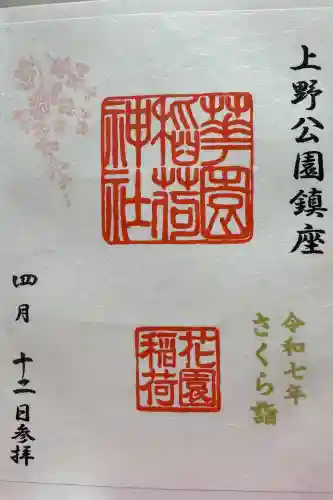 上野公園鎮座
華園
稲荷
神社
令和七年
さくら詣
花園
稲荷
四月 十二日参拝